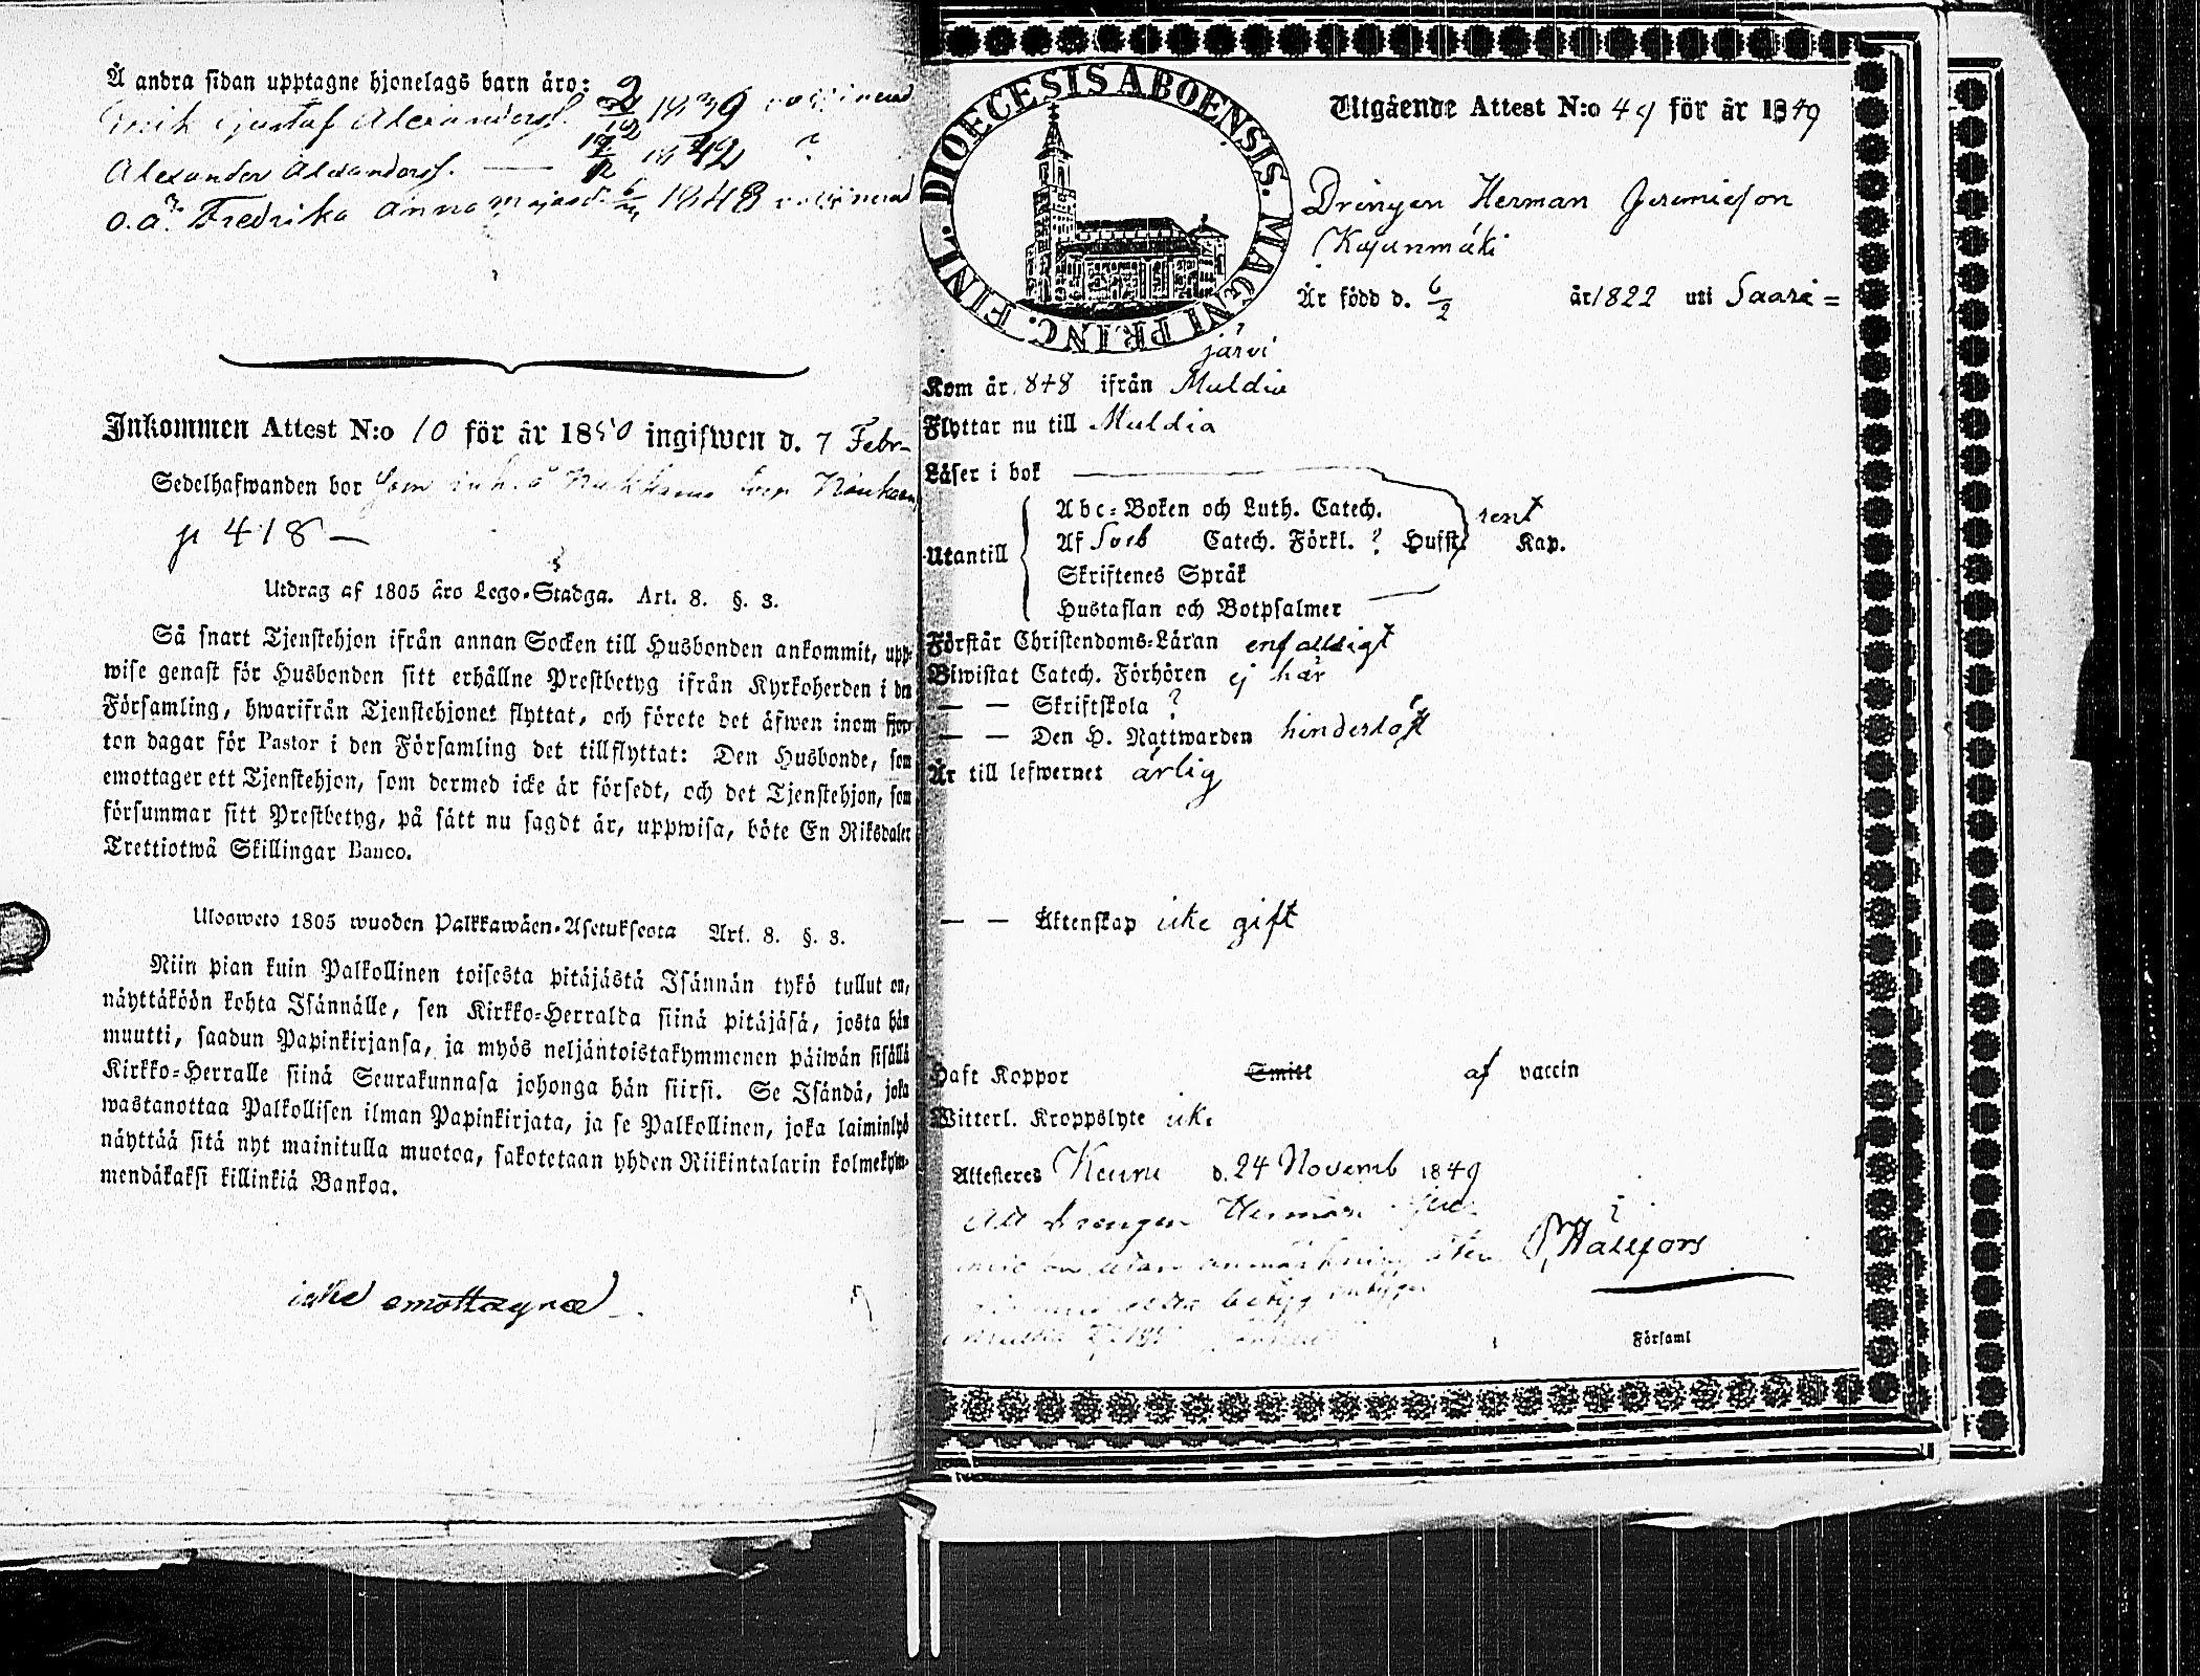 Å andra sidan upptagne hjonelags barn äro:
Erik Gustaf Alexandersf. 2/10 1839 vaccinerad
Alexander Alexandersf. — 17/12 1842 ?
o. ä. Fredrika Anna 1848 vaccinerad
Inkommen Attest N:o 10 för år 1850 ingifwen d. 7 Febr-
Sedelhafwanden bor som inh. å
p 418 —
Utdrag af 1805 års Lego-Stadga. Art. 8. §. 3.
Så snart Tjenstehjon ifrån annan Socken till Husbonden ankommit, upp-
wise genast för Husbonden sitt erhållne Prestbetyg ifrån Kyrkoherden i den
Församling, hwarifrån Tjenstehjonet flyttat, och förete det äfwen inom fjor-
ton dagar för Pastor i den Församling det tillflyttat: Den Husbonde, som
emottager ett Tjenstehjon, som dermed icke är försedt, och det Tjenstehjon, som
försummar sitt Prestbetyg, på sätt nu sagdt är, uppwisa, böte En Riksdaler
Trettiotwå Skillingar Banco.
Ulosweto 1805 wuoden Palkkawäen-Asetuksesta Art. 8. §. 3.
Niin pian kuin Palkollinen toisesta pitäjästä Isännän tykö tullut on,
näyttäköön kohta Isännälle, sen Kirkko-Herralda siinä pitäjäsä, josta hän
muutti, saadun Papinkirjansa, ja myös neljäntoistakymmenen päiwän sisällä
Kirkko-Herralle siinä Seurakunnasa johonga hän siirsi. Se Isändä, joka
wastanottaa Palkollisen ilman Papinkirjata, ja se Palkollinen, joka laiminlyö
näyttää sitä nyt mainitulla muotoa, sakotetaan yhden Riikintalarin kolmekym-
mendäkaksi killinkiä Bankoa.
icke emottagne
DIOECESIS ABOENSIS. MAGNI PRINC. FINL.
Utgående Attest N:o 49 för år 1849
Drängen Herman Jeremiesson
Kajanmäki
Är född d. 6/2 år 1822 uti Saari=
järvi
Kom år 1848 ifrån Muldia
Flyttar nu till Muldia
Läser i bok
Utantill
Abc-Boken och Luth. Catech. rent
Af Sveb Catech. Förkl. ? Husst. Kap.
Skriftenes Språk
Hustaflan och Botpsalmer
Förstår Christendoms-Läran enfaldigt
Biwistat Catech. Förhören ej här
— — Skriftskola ?
— — Den H. Nattwarden hinderlöst
Är till lefwernet ärlig
— — Äktenskap icke gift
Haft Koppor Smitt af vaccin
Witterl. Kroppslyte icke
Attesteres Keuru d. 24 Novemb 1849
Att drängen Herman Jere-
utan anmärkning
betyg
Hällfors
Församl